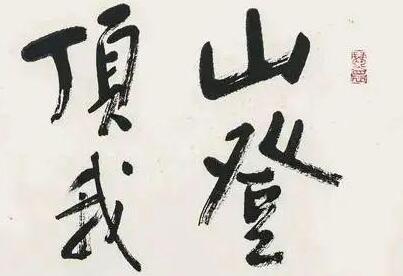 山登
頂我